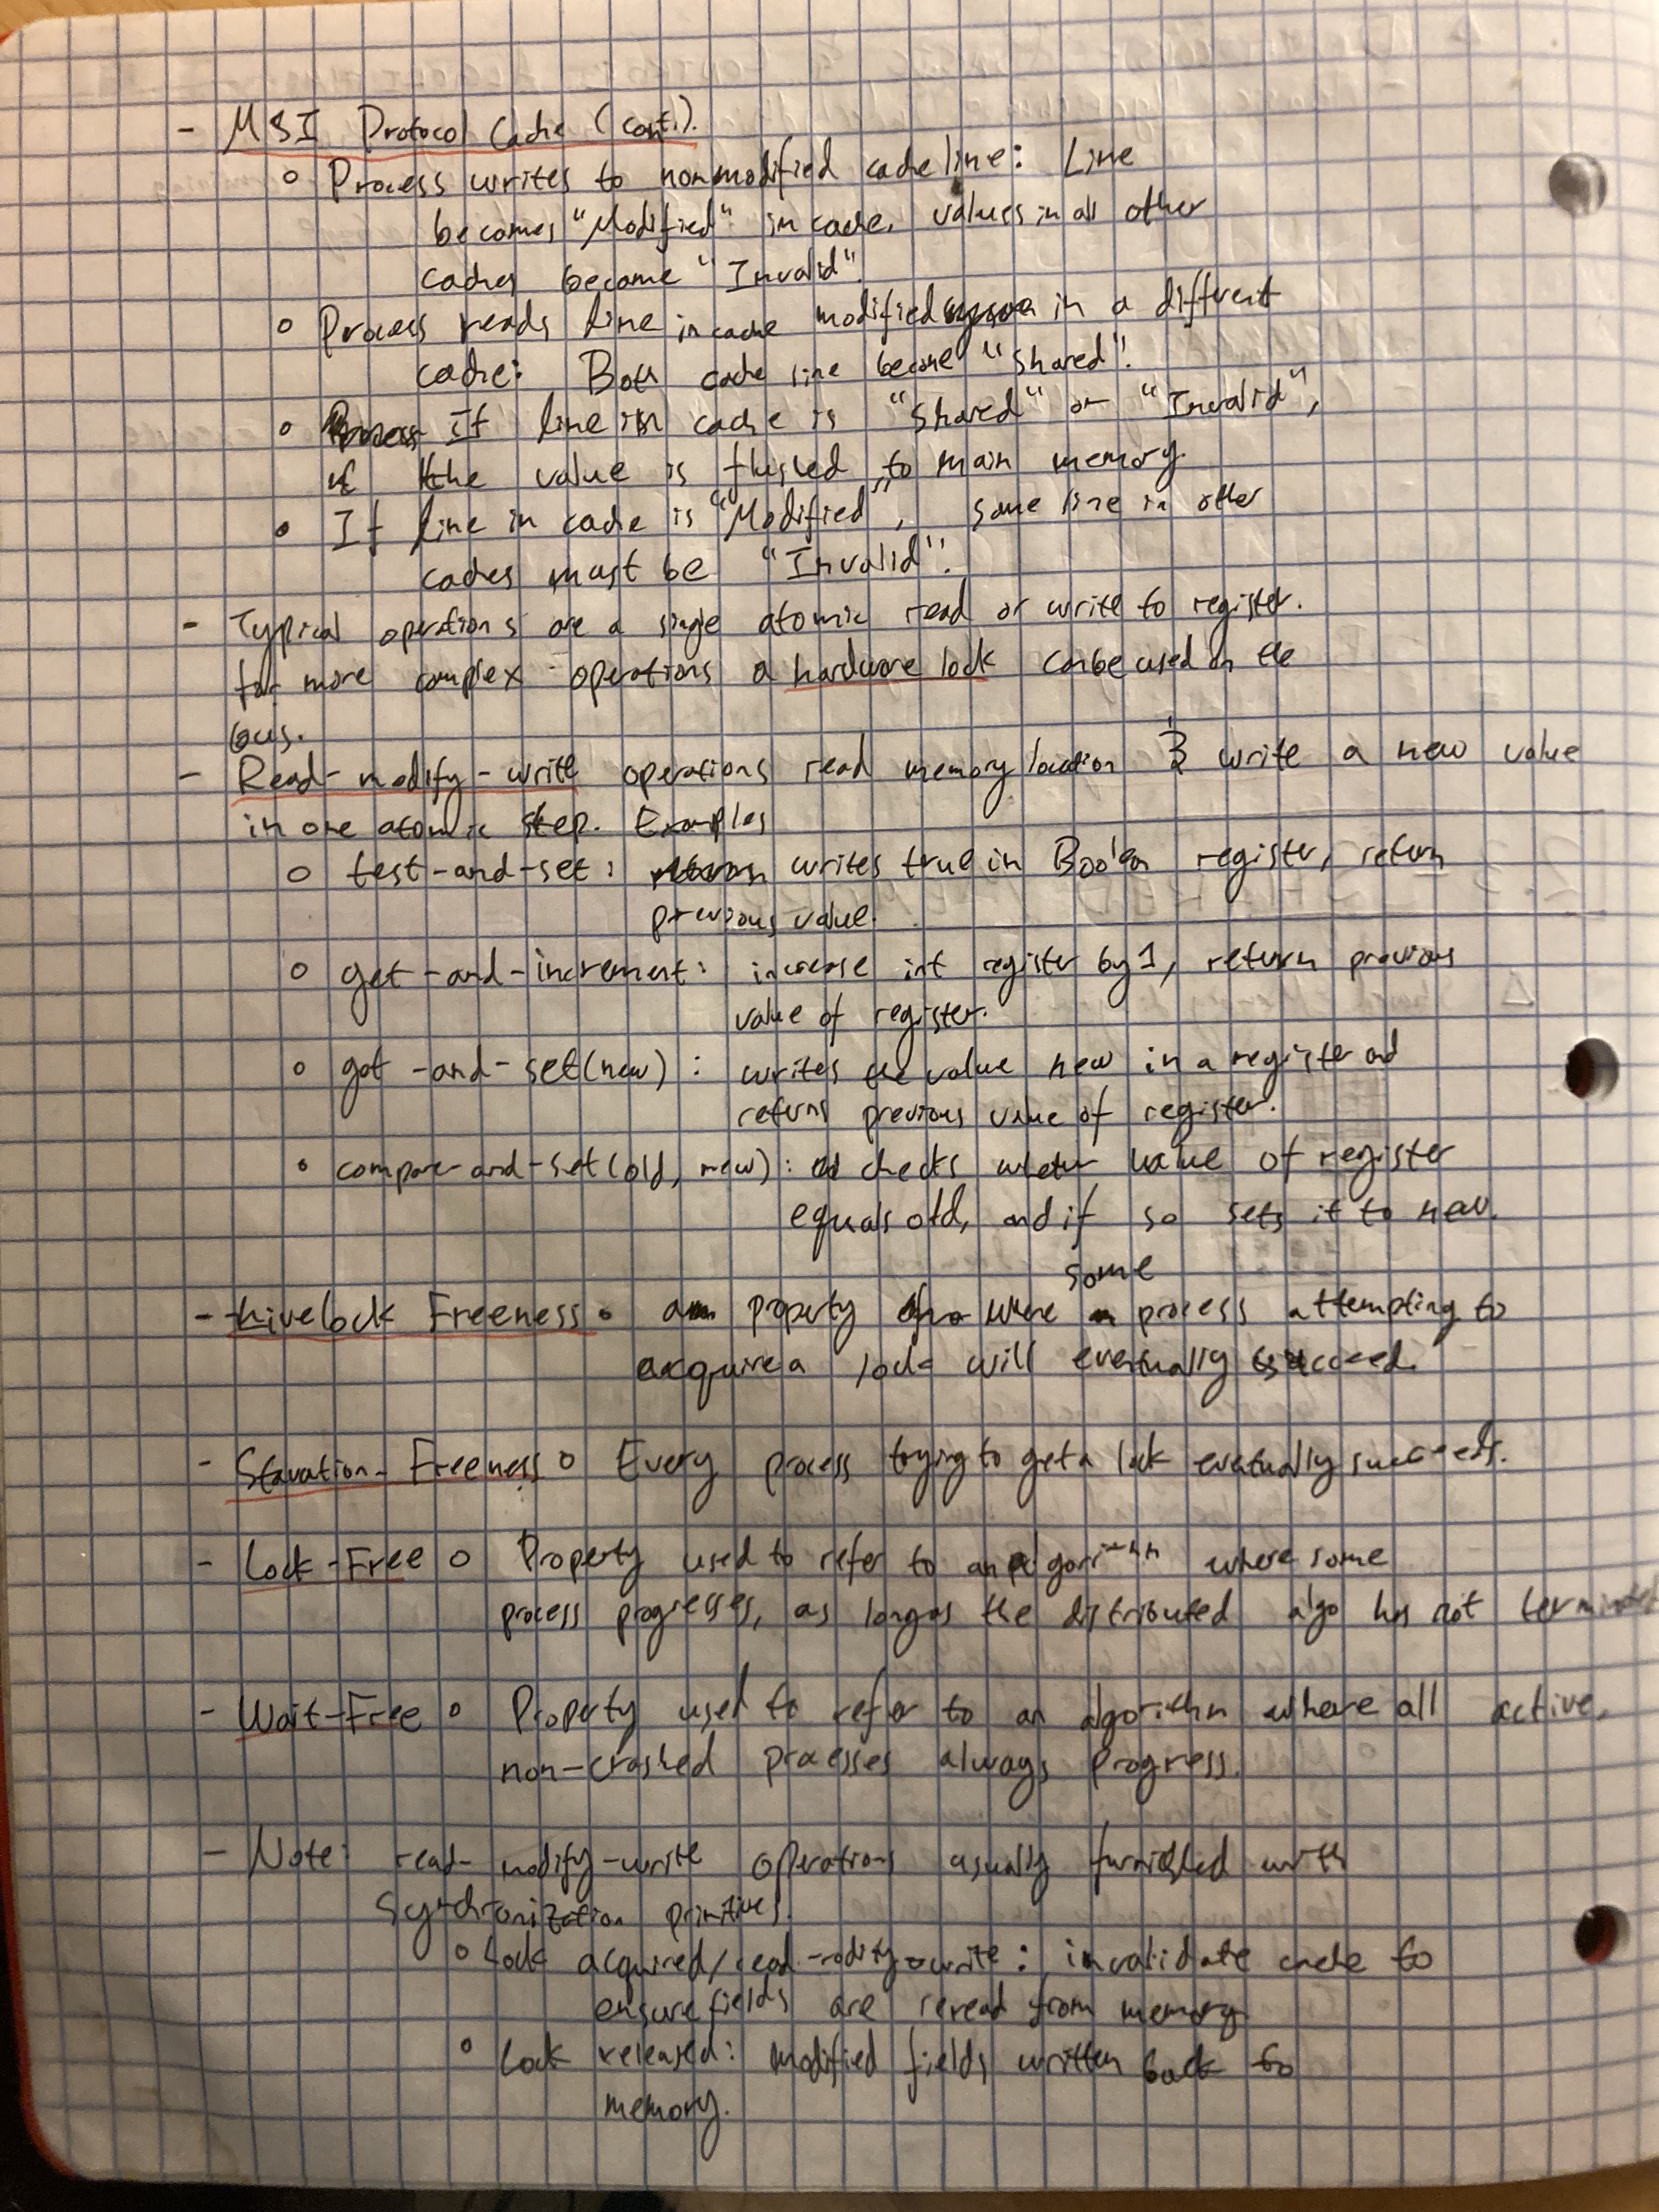 - MSI Protocol Cache (cont.).
o Process writes to nonmodified cache line: Line
becomes "Modified" in cache, values in all other
caches become "Invalid".
o Process reads line in cache modified in a different
cache: Both cache line become "Shared".
o If line in cache is "Shared" or "Invalid",
the value is flushed to main memory.
o If line in cache is "Modified", same line in other
caches must be "Invalid".
- Typical operations are a single atomic read or write to register.
for more complex operations a hardware lock can be used on the
bus.
- Read-modify-write operations read memory location & write a new value
in one atomic step. Examples
o test-and-set: writes true in Boolean register, return
previous value.
o get-and-increment: increase int register by 1, return previous
value of register.
o get-and-set(new): writes the value new in a register and
returns previous value of register.
o compare-and-set(old, new): checks whether value of register
equals old, and if so sets it to new.
some
- Livelock Freeness o a property where process attempting to
acquire a lock will eventually succeed.
- Starvation-Freeness o Every process trying to get a lock eventually succeeds.
- Lock-Free o Property used to refer to an algorithm where some
process progresses, as long as the distributed algo has not terminated
- Wait-Free o Property used to refer to an algorithm where all active,
non-crashed processes always progress.
- Note: read-modify-write operations usually furnished with
synchronization primitives.
o Lock acquired/read-modify-write: invalidate cache to
ensure fields are reread from memory
o Lock released: modified fields written back to
memory.